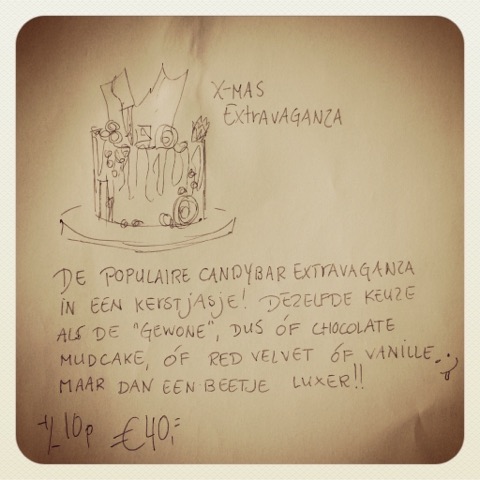 X-MAS
EXTRAVAGANZA
DE POPULAIRE CANDYBAR EXTRAVAGANZA
IN EEN KERSTJASJE! DEZELFDE KEUZE
ALS DE "GEWONE", DUS ÓF CHOCOLATE
MUDCAKE, ÓF RED VELVET ÓF VANILLE..
MAAR DAN EEN BEETJE LUXER!!
+/- 10p €40,=